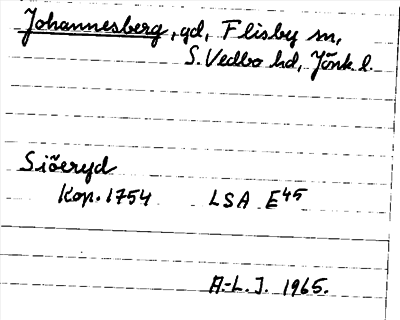 Johannesberg, gd, Flisby sn,
S. Vedbo hd, Jönk. l.
Siöeryd
Kop. 1754 LSA E45
A.-L. J. 1965.